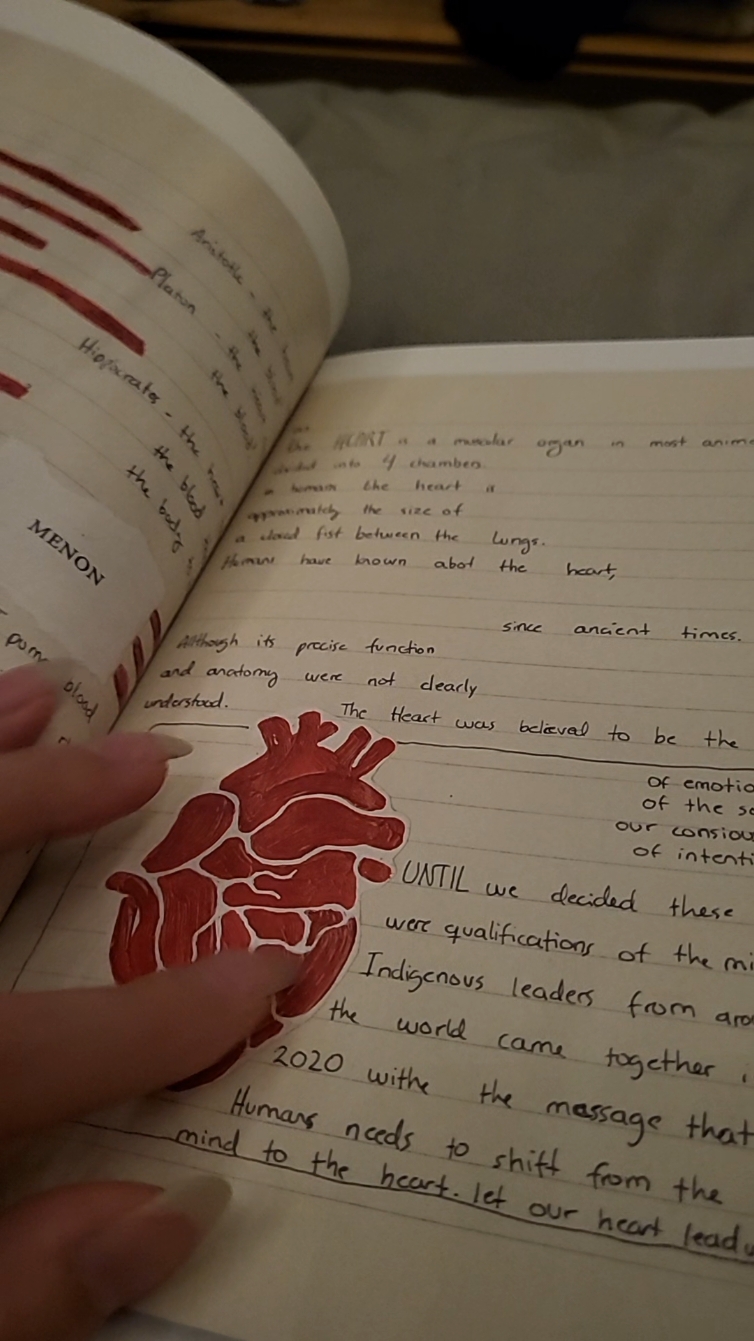 Aristotle - the
the blood
Platon - the
the blood
Hippocrates - the
the blood
the body
MENON
pum
blood
the HEART is a muscular organ in most anim
divided into 4 chambers
n humans the heart is
approximatly the size of
a closed fist between the lungs.
Humans have known abot the heart,
since ancient times.
Although its precise function
and anatomy were not clearly
understood.
The Heart was believed to be the
of emotio
of the so
our consiou
of intenti
UNTIL we decided these
were qualifications of the mi
Indigenous leaders from aro
the world came together i
2020 withe the massage that
Humans needs to shift from the
mind to the heart. let our heart lead